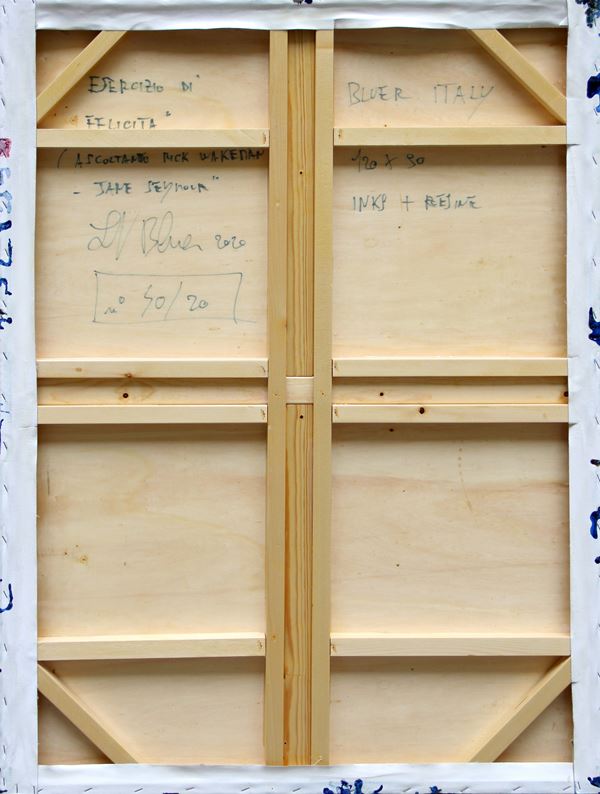 ESERCIZIO DI
FELICITA"
(ASCOLTANDO RICK WAKEMAN
- JANE SEYMOUR"
LV Bluer 2020
n° 50/20
BLUER ITALY
120 x 90
INKS + RESINE